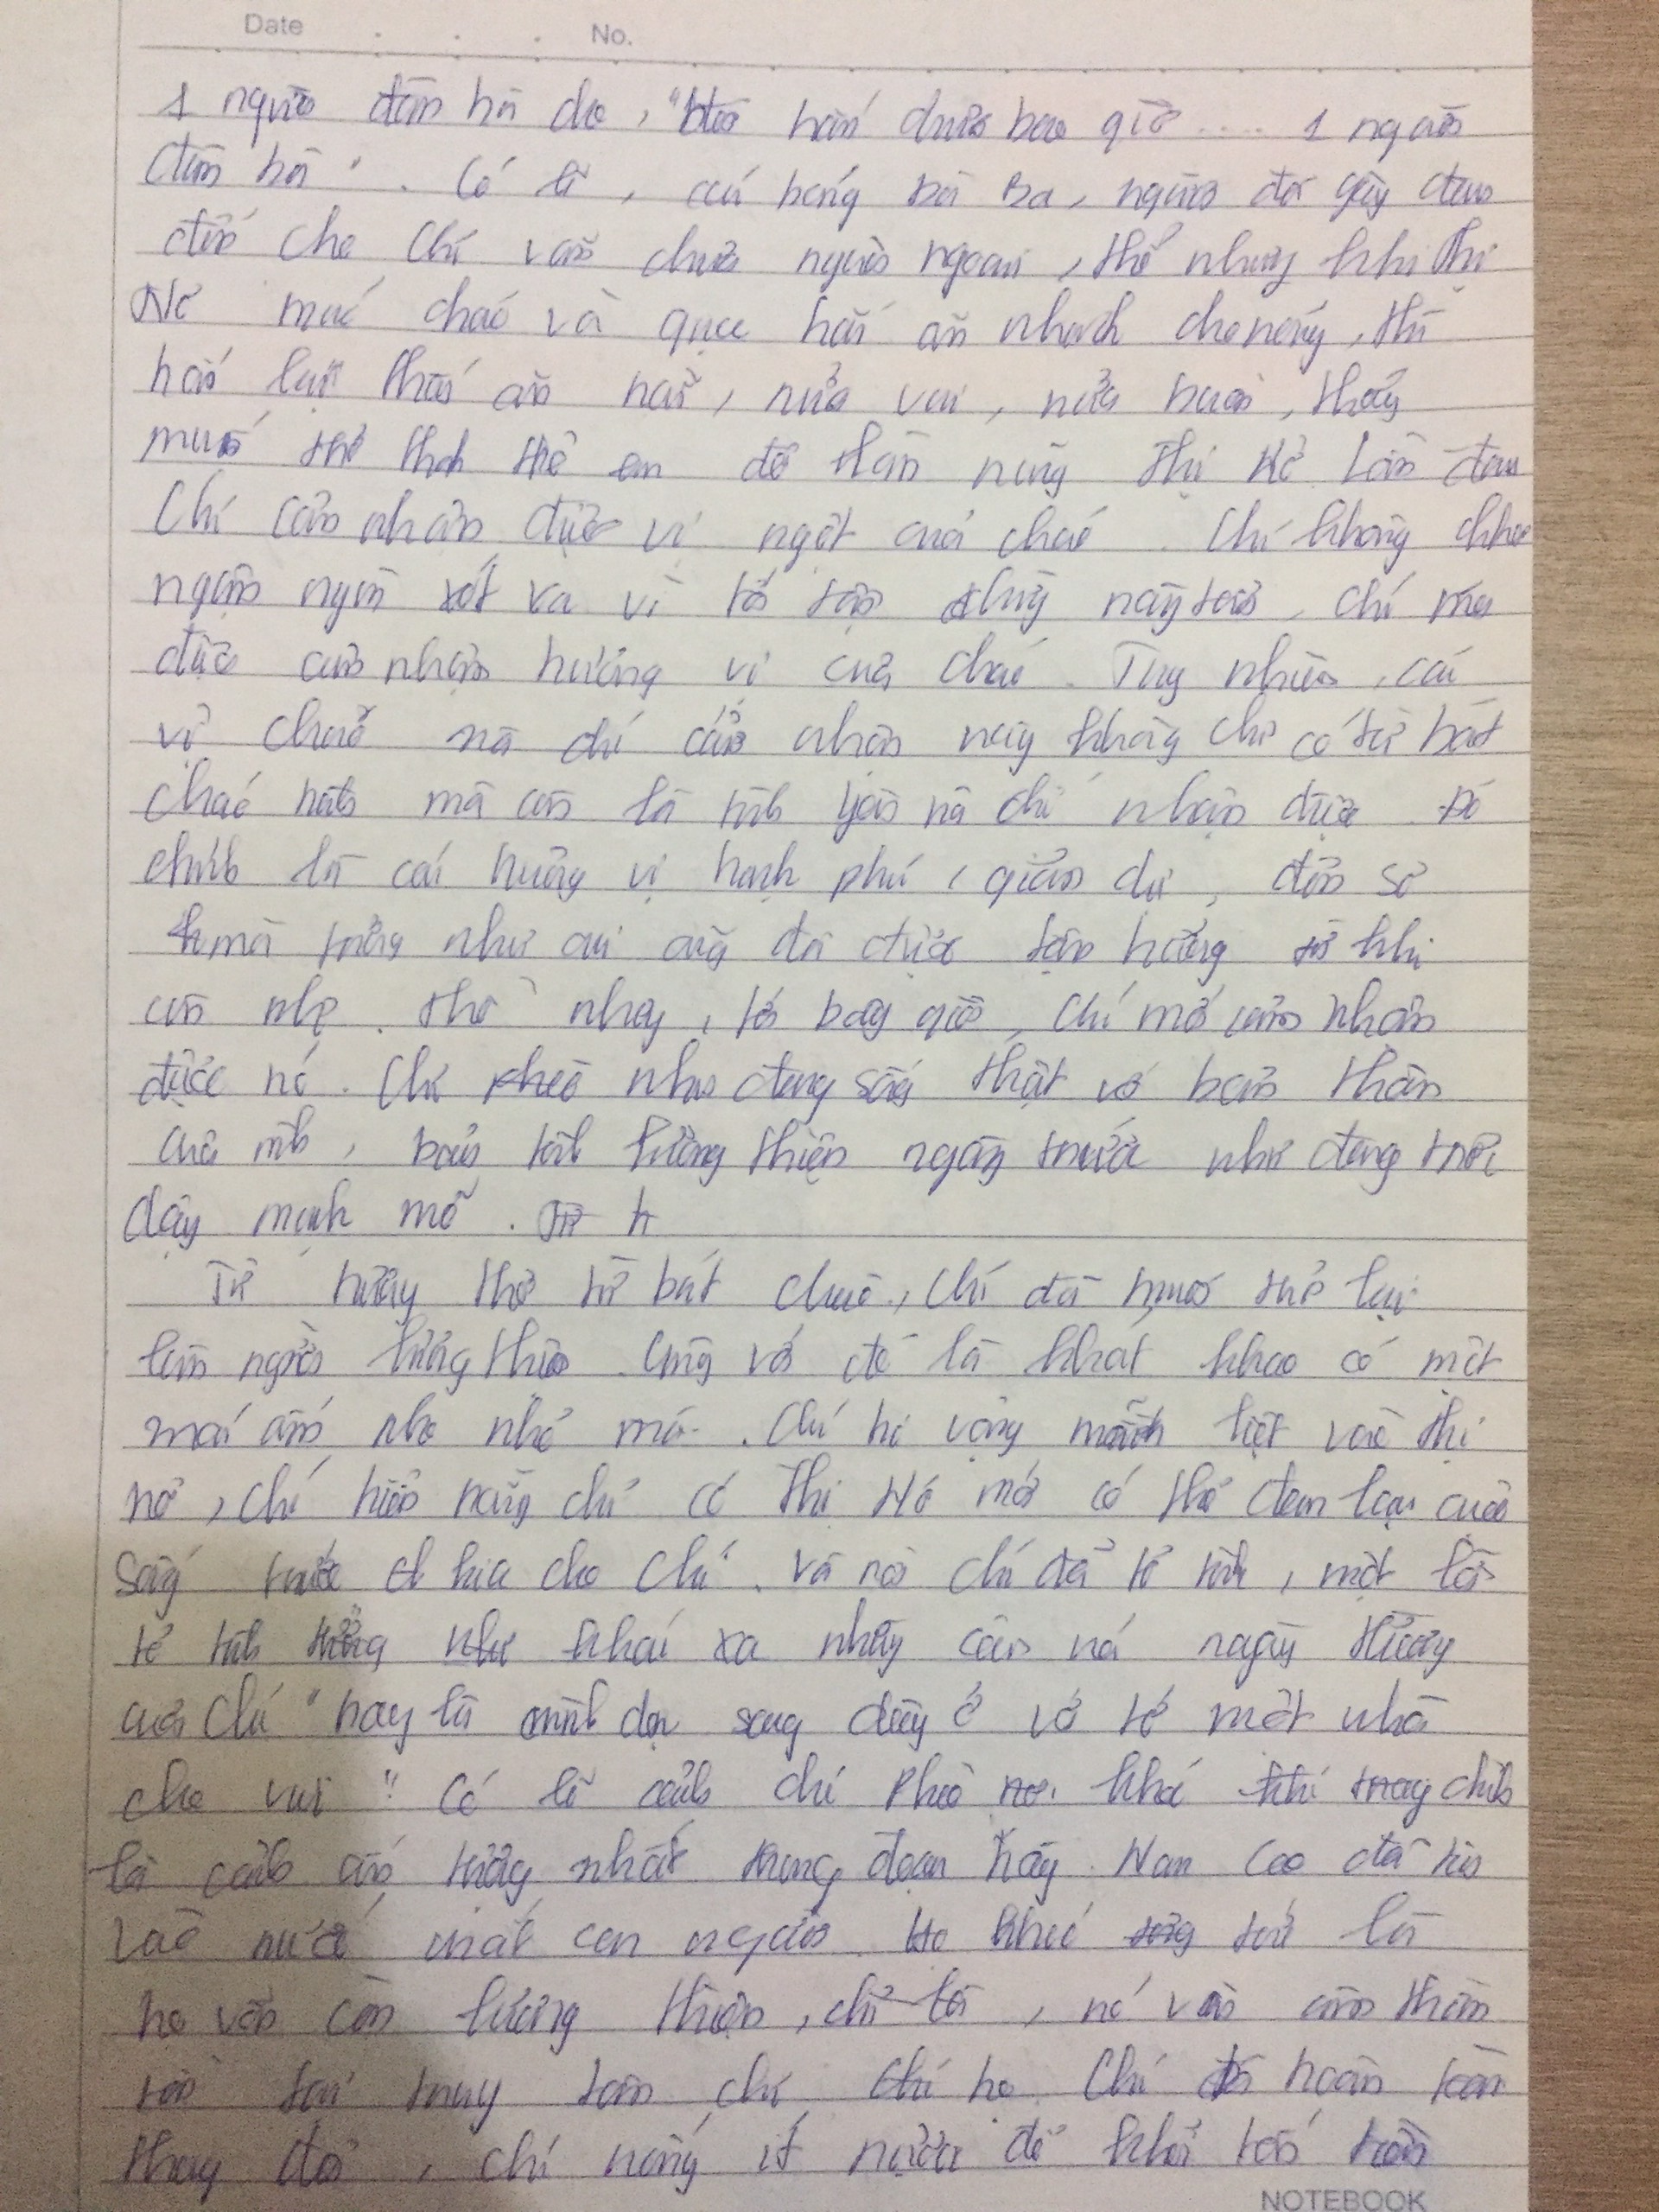 Date No.
1 người đàn bà cho, "bởi hắn chưa bao giờ .... 1 người
đàn bà". Có lẽ, cái bóng bà Ba, người đã gây đau
đớn cho Chí vẫn chưa nguôi ngoai, thế nhưng khi Thị
Nở múc cháo và giục hắn ăn nhanh cho nóng, thì
hắn lại thấy ăn năn, nửa vui, nửa buồn, thấy
muốn trở thành trẻ em để làm nũng Thị Nở. Lần đầu
Chí cảm nhận được vị ngọt của cháo. Chí không
ngậm ngùi xót xa vì tới tận chừng này tuổi, chí mới
được cảm nhận hương vị của cháo. Tuy nhiên, cái
vị cháo mà chí cảm nhận này không chỉ có từ bát
cháo hành mà còn là tình yêu mà chí nhận được. Đó
chính là cái hương vị hạnh phúc, giản dị, đơn sơ
mà tưởng như ai cũng đã được tận hưởng từ khi
còn nhỏ. Thế nhưng, tới bây giờ, Chí mới cảm nhận
được nó. Chí phèo như đang sống thật với bản thân
của mình, bản tính lương thiện ngày trước như đang trỗi
dậy mạnh mẽ. Từ h
Từ hương thơ từ bát cháo, Chí đã muốn trở lại
làm người lương thiện. Cùng với đó là khát khao có một
mái ấm nho nhỏ mới. Chí hi vọng mãnh liệt vào thị
nở, chí hiểu rằng chỉ có Thị Nở mới có thể đem lại cuộc
sống trước kia cho Chí. Và rồi chí đã tỏ tình, một lời
tỏ tình tưởng như khác xa những câu nói ngày thường
của Chí "hay là mình dọn sang đây ở với tớ một nhà
cho vui". Có lẽ cảnh chí Phèo khóc chính
là cảnh ấn tượng nhất trong đoạn này. Nam Cao đã tin
vào nước mắt con người. Họ khóc tức là
họ vẫn còn lương thiện, chỉ là, nó vẫn âm thầm
tồn tại trong tâm chí họ. Chí đã hoàn toàn
thay đổi, chí uống ít rượu để khỏi tốn tiền
NOTEBOOK